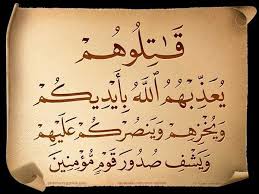 قَـٰتِلُوهُمْ
يُعَذِّبْهُمُ ٱللَّهُ بِأَيْدِيكُمْ
وَيُخْزِهِمْ وَيَنصُرْكُمْ عَلَيْهِمْ
وَيَشْفِ صُدُورَ قَوْمٍ مُّؤْمِنِينَ